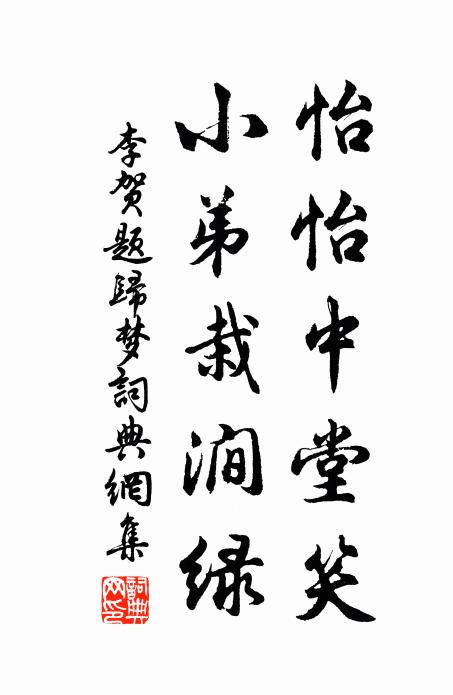 怡怡中堂笑
小弟栽澗绿
李贺题歸梦詞典網集
詞典网印